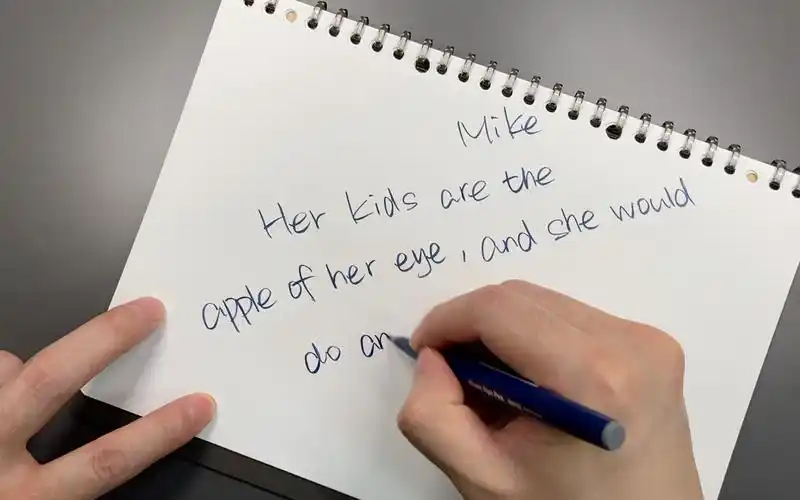 Mike
Her kids are the
apple of her eye, and she would
do an